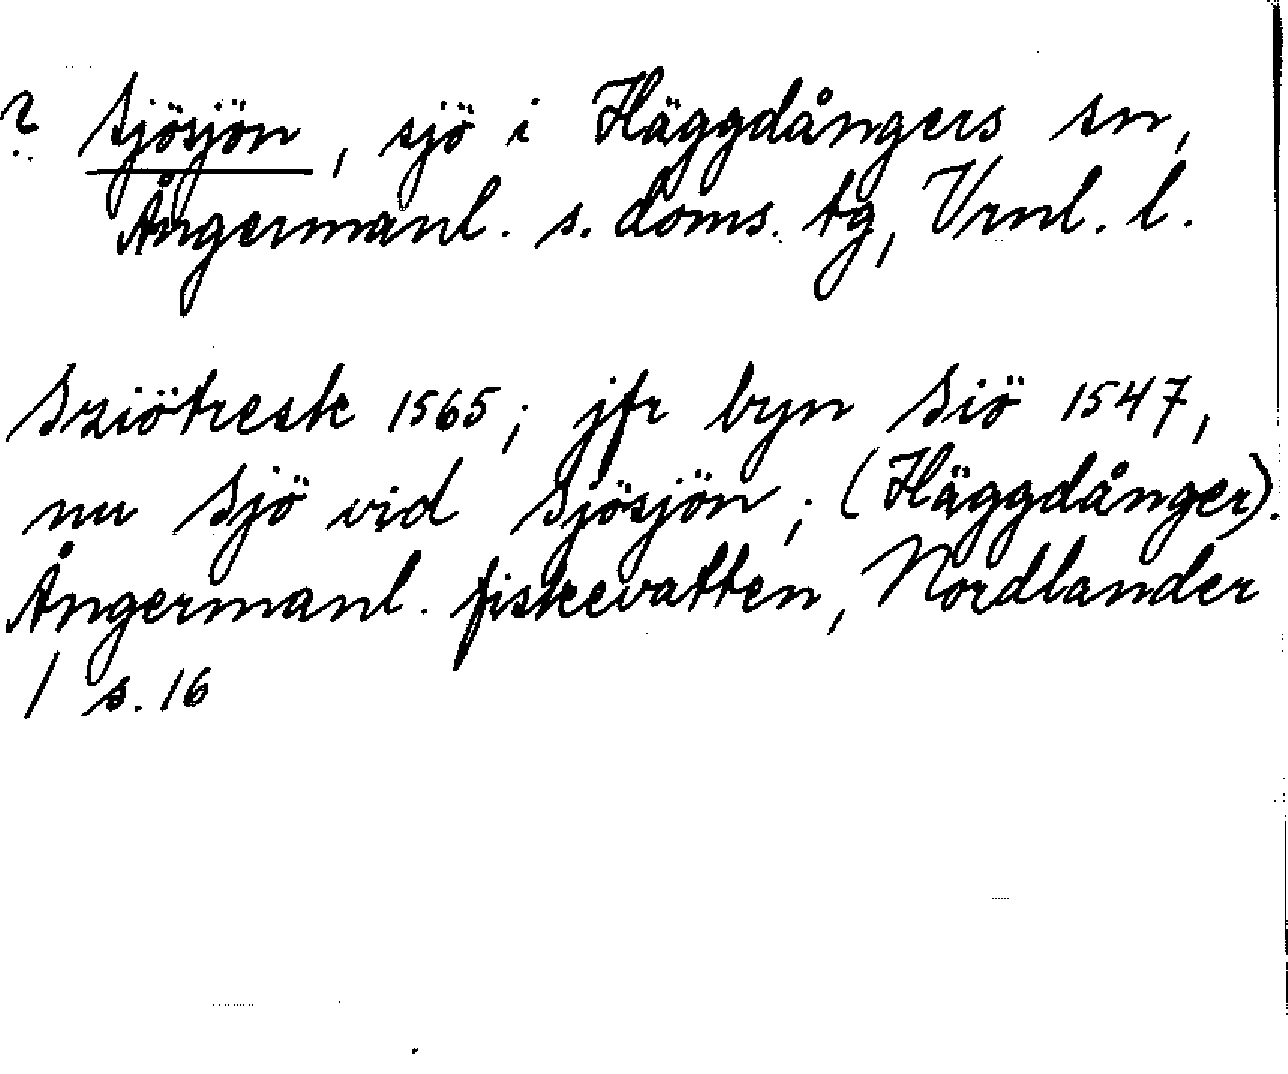 ? Sjösjön, sjö i Häggdångers sn,
Ångermanl. s. doms. tg, Vrnl. l.
Sziötresk 1565; jfr byn Siö 1547,
nu Sjö vid Sjösjön; (Häggdånger).
Ångermanl. fiskevatten, Nordlander
/ s. 16